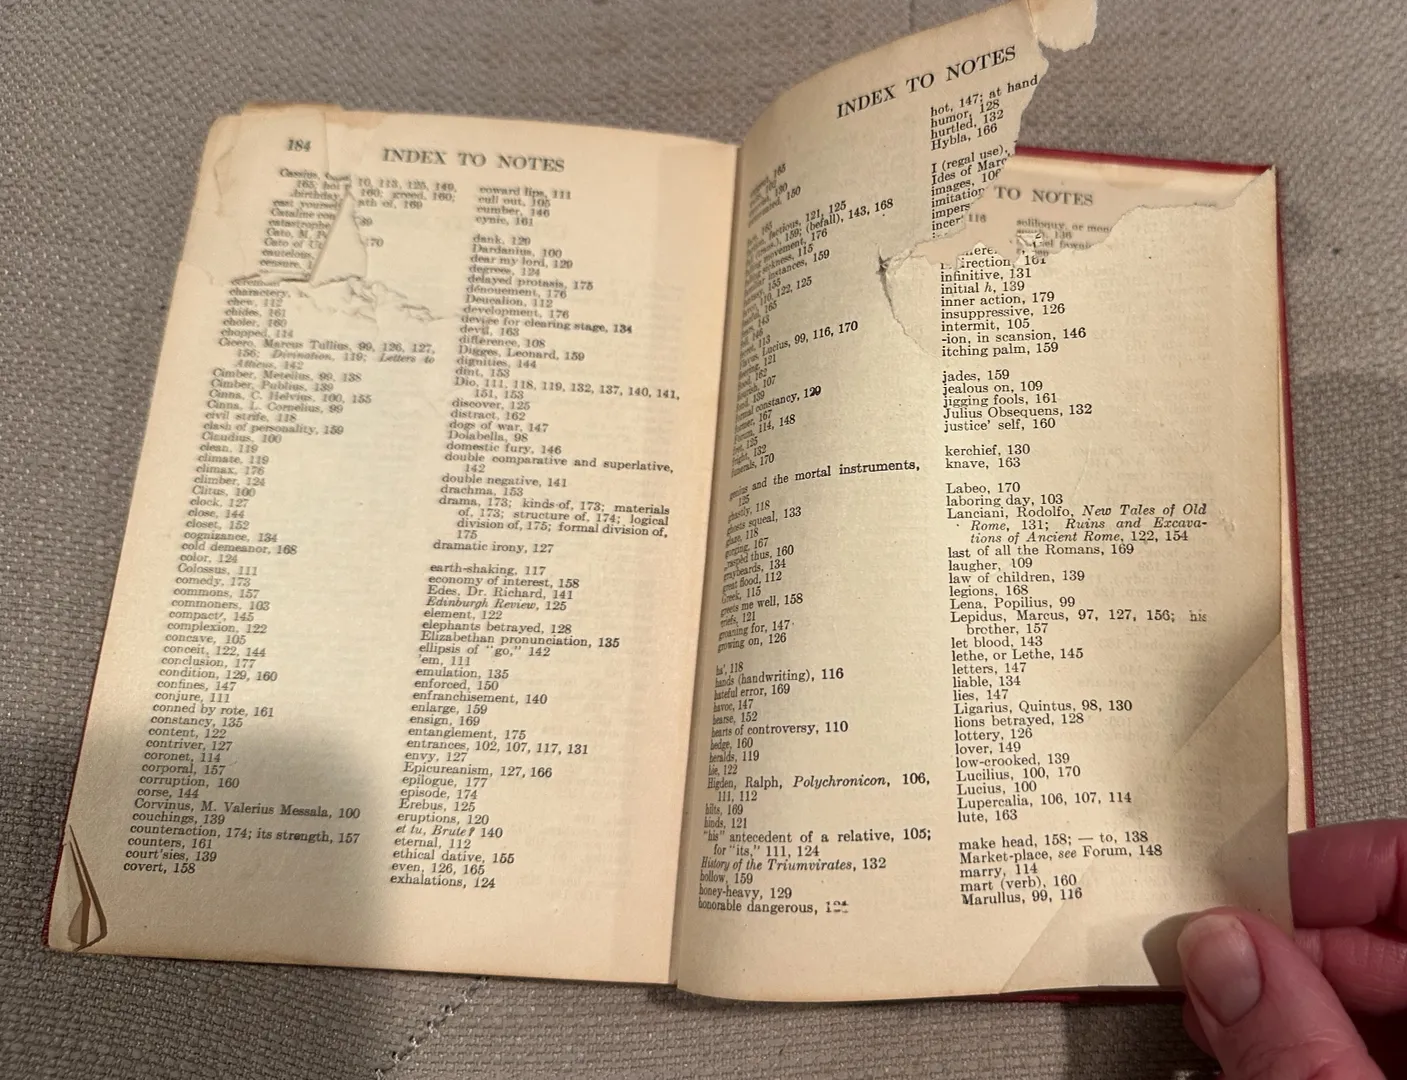 184
INDEX TO NOTES
Cassius,
10, 113, 125, 149,
birthday 160; greed, 160;
cast yourself ath of, 169
Cataline
catastrophe
Cato, M.
Cato of 170
cautelous,
censure,
charactery,
chew, 112
chides, 161
choler, 160
chopped, 114
Cicero, Marcus Tullius, 99, 126, 127,
156; Divination, 119; Letters to
Atticus, 142
Cimber, Metellus, 99, 138
Cimber, Publius, 139
Cinna, C. Helvius, 100, 155
Cinna, L. Cornelius, 99
civil strife, 118
clash of personality, 159
Claudius, 100
clean, 119
climate, 119
climax, 176
climber, 124
Clitus, 100
clock, 127
close, 144
closet, 152
cognizance, 134
cold demeanor, 168
color, 124
Colossus, 111
comedy, 173
commons, 157
commoners, 103
compact, 145
complexion, 122
concave, 105
conceit, 122, 144
conclusion, 177
condition, 129, 160
confines, 147
conjure, 111
conned by rote, 161
constancy, 135
content, 122
contriver, 127
coronet, 114
corporal, 157
corruption, 160
corse, 144
Corvinus, M. Valerius Messala, 100
couchings, 139
counteraction, 174; its strength, 157
counters, 161
court'sies, 139
covert, 158
coward lips, 111
cull out, 105
cumber, 146
cynic, 161
dank, 129
Dardanius, 100
dear my lord, 129
degrees, 124
delayed protasis, 175
dénouement, 176
Deucalion, 112
development, 176
device for clearing stage, 134
devil, 163
difference, 108
Digges, Leonard, 159
dignities, 144
dint, 153
Dio, 111, 118, 119, 132, 137, 140, 141,
151, 153
discover, 125
distract, 162
dogs of war, 147
Dolabella, 98
domestic fury, 146
double comparative and superlative,
142
double negative, 141
drachma, 153
drama, 173; kinds of, 173; materials
of, 173; structure of, 174; logical
division of, 175; formal division of,
175
dramatic irony, 127
earth-shaking, 117
economy of interest, 158
Edes, Dr. Richard, 141
Edinburgh Review, 125
element, 122
elephants betrayed, 128
Elizabethan pronunciation, 135
ellipsis of "go," 142
'em, 111
emulation, 135
enforced, 150
enfranchisement, 140
enlarge, 159
ensign, 169
entanglement, 175
entrances, 102, 107, 117, 131
envy, 127
Epicureanism, 127, 166
epilogue, 177
episode, 174
Erebus, 125
eruptions, 120
et tu, Brute? 140
eternal, 112
ethical dative, 155
even, 126, 165
exhalations, 124
INDEX TO NOTES
165
150
factious, 121, 125
159; (befall), 143, 168
movement, 176
sickness, 115
instances, 159
155
110, 122, 125
165
143
113
Lucius, 99, 116, 170
121
107
139
constancy, 129
167
Forum, 114, 148
125
132
funerals, 170
genius and the mortal instruments,
125
ghastly, 118
ghosts squeal, 133
glaze, 118
gorging, 167
thus, 160
graybeards, 134
great flood, 112
Greek, 115
greets me well, 158
griefs, 121
groaning for, 147
growing on, 126
ha', 118
hands (handwriting), 116
hateful error, 169
havoc, 147
hearse, 152
hearts of controversy, 110
hedge, 160
heralds, 119
hie, 122
Higden, Ralph, Polychronicon, 106,
111, 112
hilts, 169
hinds, 121
"his" antecedent of a relative, 105;
for "its," 111, 124
History of the Triumvirates, 132
hollow, 159
honey-heavy, 129
honorable dangerous,
hot, 147; at hand
humor, 128
hurtled, 132
Hybla, 166
I (regal use),
Ides of
images,
imitation
TO NOTES
116
soliloquy, or
136
indirection, 161
infinitive, 131
initial h, 139
inner action, 179
insuppressive, 126
intermit, 105
-ion, in scansion, 146
itching palm, 159
jades, 159
jealous on, 109
jigging fools, 161
Julius Obsequens, 132
justice' self, 160
kerchief, 130
knave, 163
Labeo, 170
laboring day, 103
Lanciani, Rodolfo, New Tales of Old
Rome, 131; Ruins and Excava-
tions of Ancient Rome, 122, 154
last of all the Romans, 169
laugher, 109
law of children, 139
legions, 168
Lena, Popilius, 99
Lepidus, Marcus, 97, 127, 156; his
brother, 157
let blood, 143
lethe, or Lethe, 145
letters, 147
liable, 134
lies, 147
Ligarius, Quintus, 98, 130
lions betrayed, 128
lottery, 126
lover, 149
low-crooked, 139
Lucilius, 100, 170
Lucius, 100
Lupercalia, 106, 107, 114
lute, 163
make head, 158; — to, 138
Market-place, see Forum, 148
marry, 114
mart (verb), 160
Marullus, 99, 116